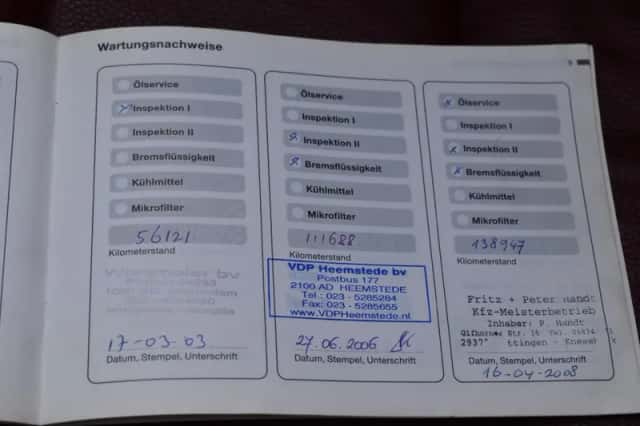 Wartungsnachweise
Ölservice
Inspektion I
Inspektion II
Bremsflüssigkeit
Kühlmittel
Mikrofilter
56121
Kilometerstand
bv
17-03-03
Datum, Stempel, Unterschrift
Ölservice
Inspektion I
Inspektion II
Bremsflüssigkeit
Kühlmittel
Mikrofilter
111688
Kilometerstand
VDP Heemstede bv
Postbus 177
2100 AD HEEMSTEDE
Tel.: 023 - 5285284
Fax: 023 - 5285655
www.VDPHeemstede.nl
27.06.2006
Datum, Stempel, Unterschrift
Ölservice
Inspektion I
Inspektion II
Bremsflüssigkeit
Kühlmittel
Mikrofilter
138947
Kilometerstand
Fritz + Peter
Kfz-Meisterbetrieb
Inhaber: P.
Str. 16
ttingen - Knesebe
Datum, Stempel, Unterschrift
16-04-2008